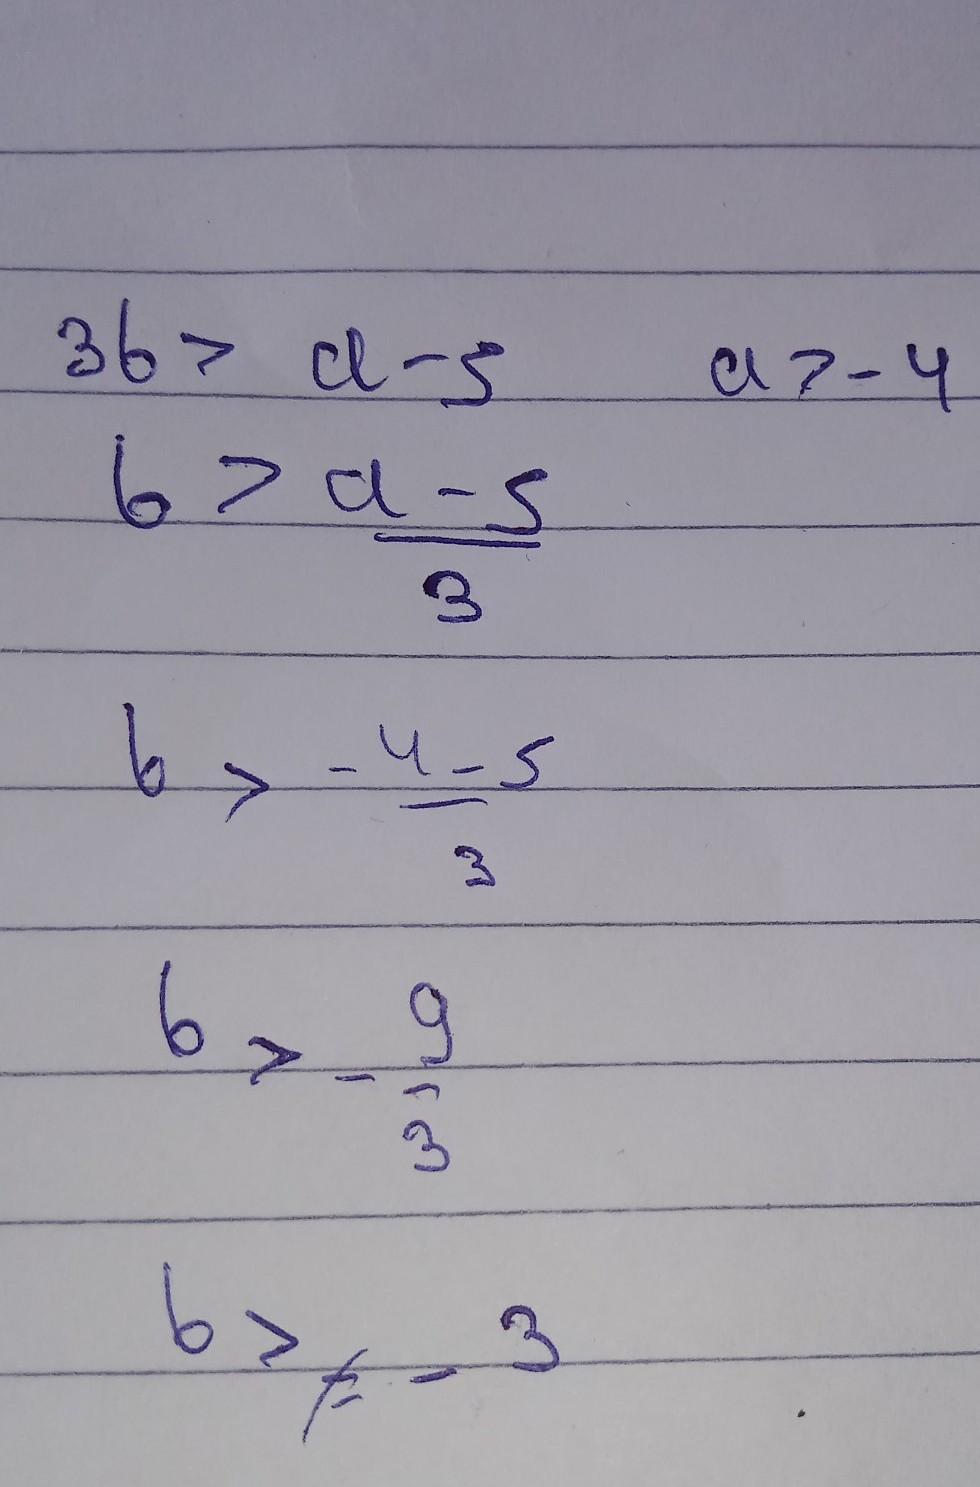 3b > a - 5 a > - 4
b > a - 5
3
b > - 4 - 5
3
b > - 9
3
b > - 3